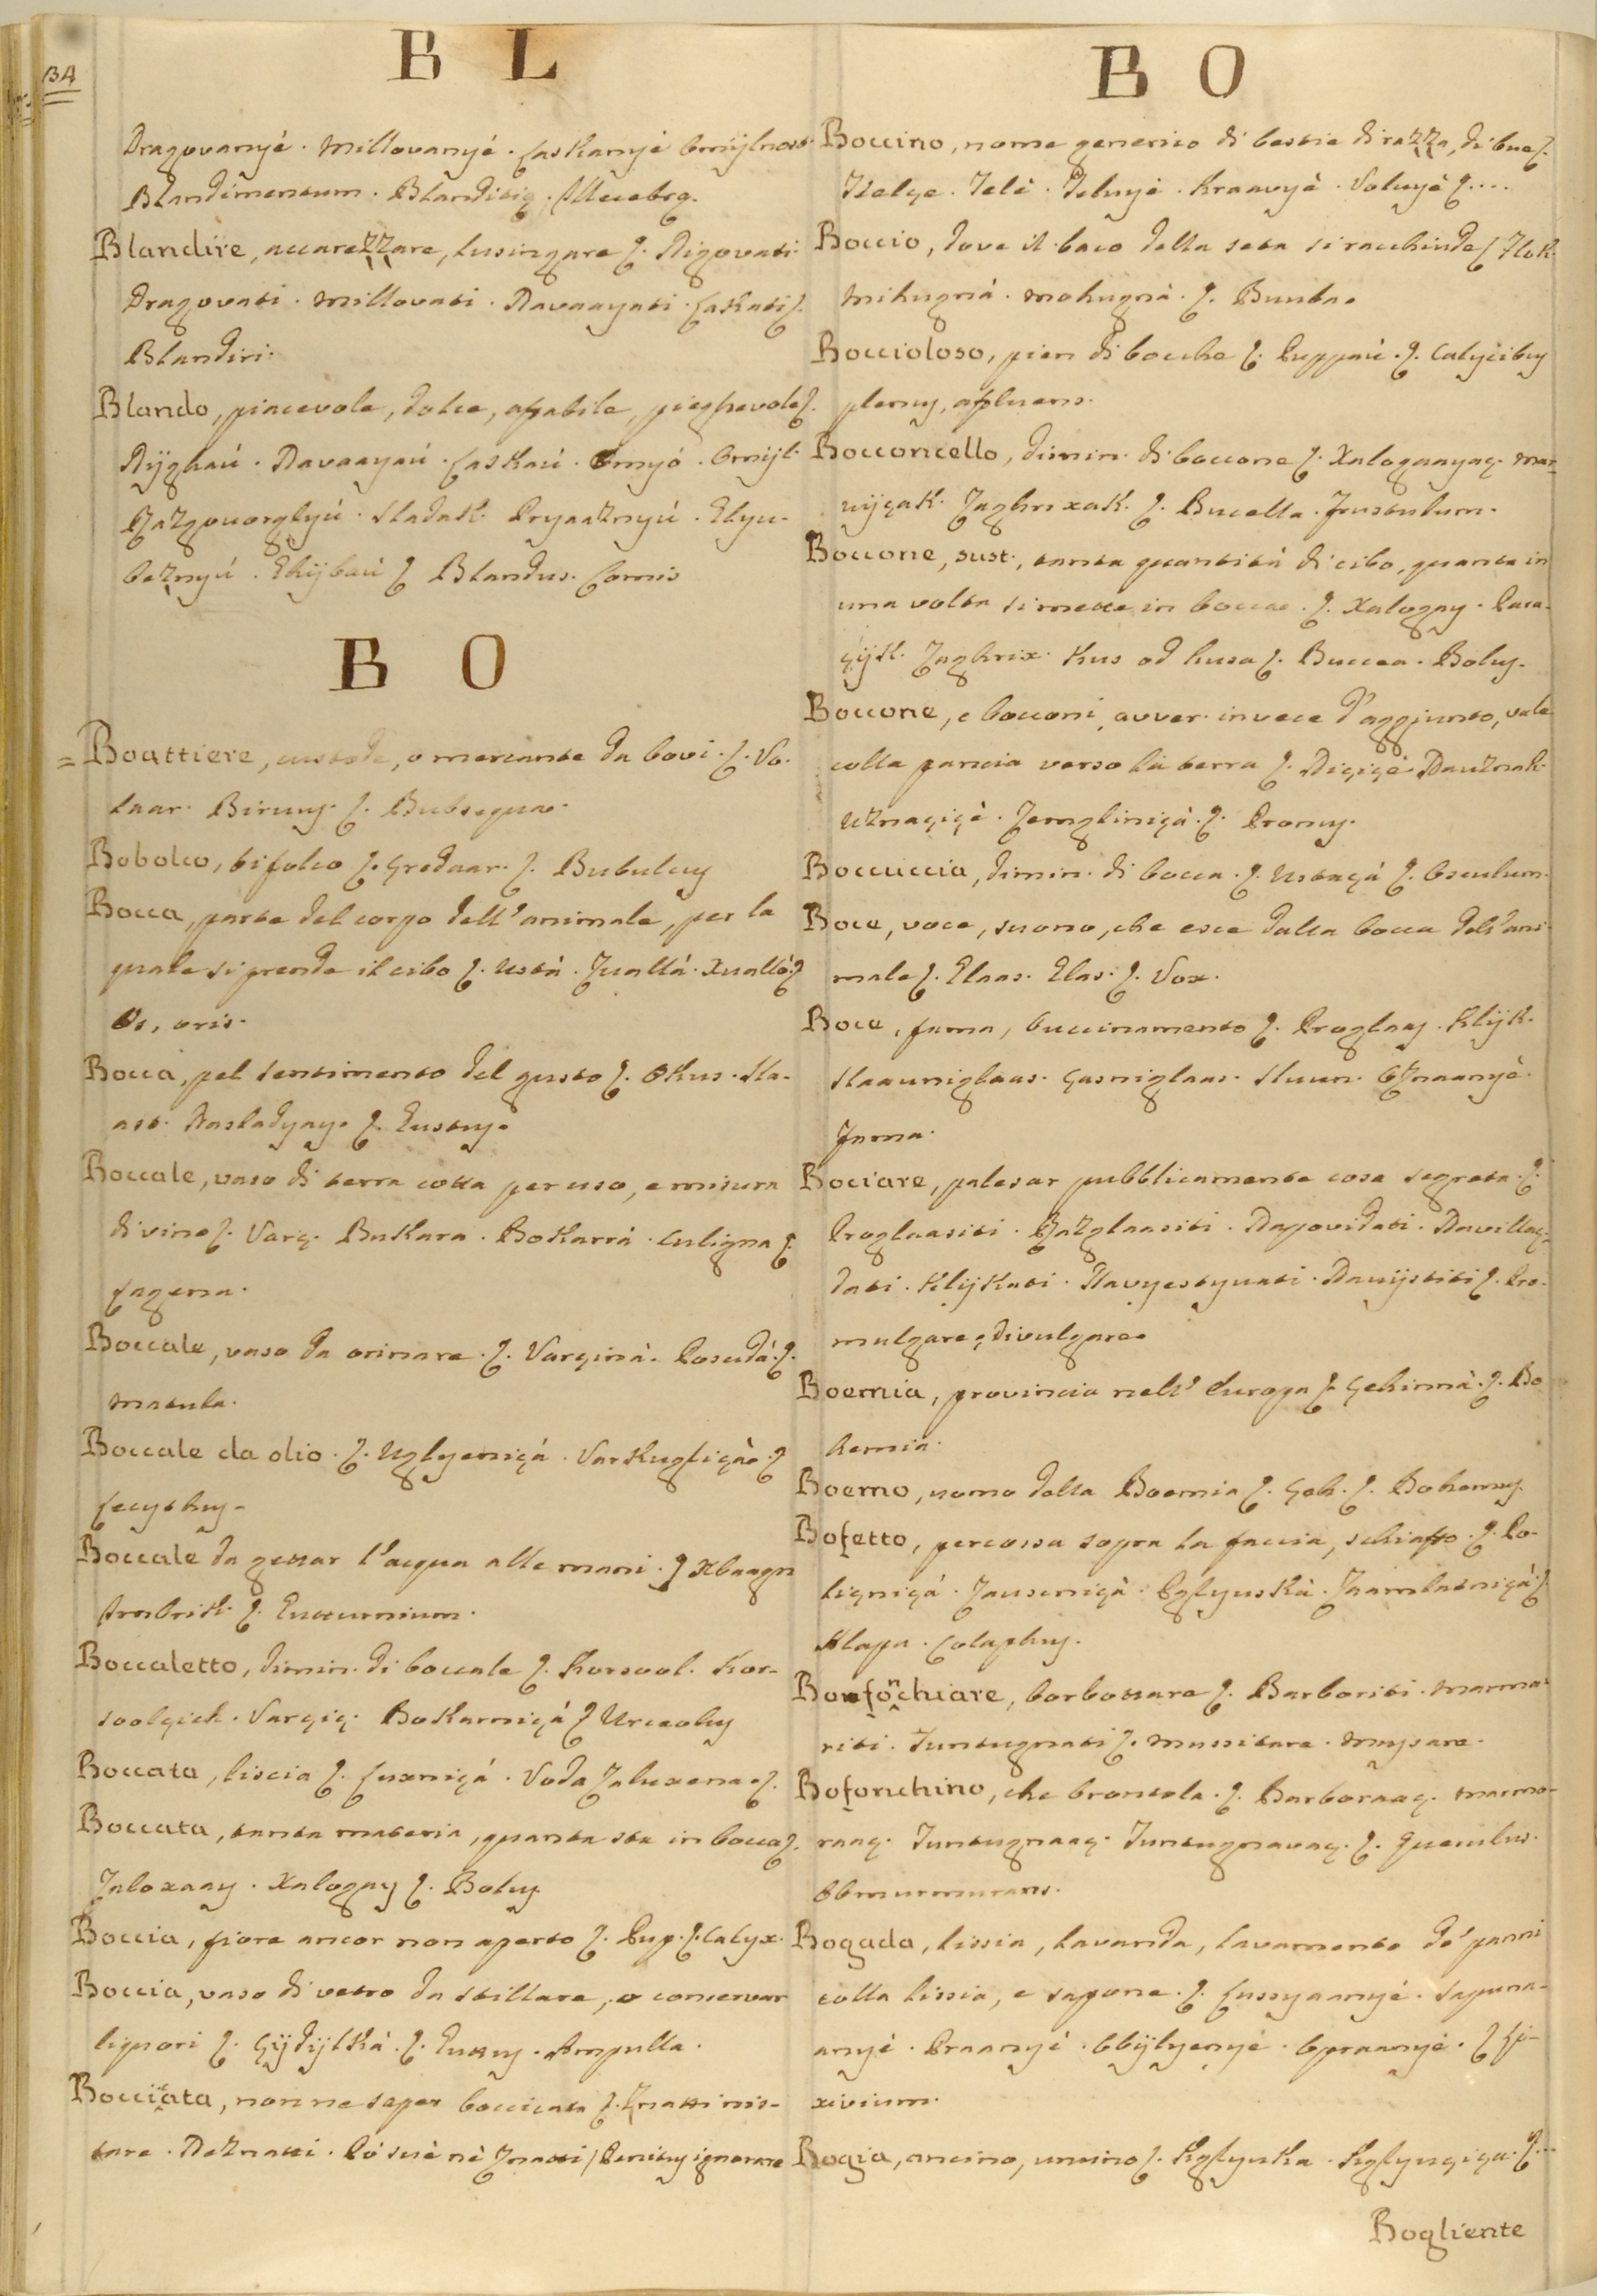 134
B L
Dragovanyé . Millovanyé . Laskanyé Omijlnost
Blandimentum . Blanditię . Illecebrę.
Blandire, accarezzare, lusingare ſ. Nigovati.
Dragovati . Millovati . Navaayati . Laskati ſ.
Blandiri.
Blando, piacevole, dolce, affabile, pieghevole ſ.
Nijghaú . Navaayaú . Laskaú . Omyó . Omijl.
Razgovorglyú . Sladak . Pryaaznyú . Glyu-
beznyú . Ghijbaú ſ Blandus . Comis
B O
= Boattiere, custode, o mercante da bovi . ſ. Vo-
laar . Biruuy . ſ. Bubsequa.
Bobolco, bifolco ſ. Gredaar . ſ. Bubulcuy
Bocca, parte del corpo dell' animale, per la
quale si prende il cibo ſ. Ustá . Zuallá . Xualló . ſ
Os, oris.
Bocca, pel sentimento del gusto ſ. Okus . Sla-
ast . Nasladyay. ſ. Gustuy.
Boccale, vaso di terra cotta per uso, e misura
di vino ſ. Varç . Bukara . Bokarrá . Culigna ſ.
Lagena.
Boccale, vaso da orinare . ſ. Varçiná . Posudá . ſ.
Matula.
Boccale da olio . ſ. Uglyeniçá . Varkugliçá . ſ
Lecythuy.
Boccale da gettar l'acqua alle mani . ſ Xbaagn
Ambrik . ſ. Gutturnium.
Boccaletto, dimin. di boccale ſ. Korsool . Kor-
soolçich . Varçiç . Bokarniçá ſ Urceoluy
Boccata, liscia ſ. Luxniçá . Voda Zaluxena . ſ.
Boccata, tanta materia, quanta sta in bocca ſ.
Zaloxaay . Xalogay ſ. Boluy
Boccia, fiore ancor non aperto ſ. Pup . ſ. Calyx.
Boccia, vaso di vetro da stillare, o conservar
liquori ſ. Çijdijlká . ſ. Guttuy . Ampulla.
Bocciata, non ne saper boccicata ſ. Znatti nis-
tare . Neznatti . Pó sué né Znatti / Penituy ignorare
B O
Boccino, nome generico di bestie di razza, di bue ſ.
Tselçe . Telé . Teluyé . Kraavyé . Voluyé ſ....
Boccio, dove il baco della seta si racchiude ſ Zlok
Mihugná . Mohugná . ſ. Bunba.
Boccioloso, pien di bocche ſ. Puppaú . ſ. Calycibuy
plenuy, affluens.
Bocconcello, dimin. di boccone ſ. Xalogaayaç . Mar-
vijçak . Zaghrixak . ſ. Bucella . Frustulum.
Boccone, sust., tanta quantitá di cibo, quanta in
una volta si mette in bocca . ſ. Xalogay . Para-
çijk . Zaghrix . Kus od kusa ſ. Buccea . Boluy.
Boccone, e bocconi, avver. invece d'aggiunto, vale
colla pancia verso la terra ſ. Niçiçé . Nauznak.
Uznaçiçé . Zemgliniçá . ſ. Pronuy.
Boccuccia, dimin. di bocca . ſ. Ustaçá ſ. Osculum.
Boce, voce, suono, che esce dalla bocca dell'ani-
male ſ. Glaas . Glas . ſ. Vox.
Boce, fama, buccinamento ſ. Proglaay . Klijk.
Slaauniglaas . Çasniglaas . Sluun . Oznaanyé.
Fama.
Bociare, palesar pubblicamente cosa segreta . ſ.
Proglaasiti . Razglaasiti . Napovidati . Navillaç-
dati . Klijkati . Navyestyuati . Navijstiti ſ. Pro-
mulgare, divulgare.
Boemia, provincia nell' Europa ſ. Çehinná . ſ. Bo
hemia.
Boemo, uomo della Boemia ſ. Çeh . ſ. Bohemuy.
Bofetto, percossa sopra la faccia, schiaffo . ſ. Po-
liçniçá . Zauseniçá . Pglyuská . Zaamlatniçá . ſ.
Klapa . Colaphuy.
Bonfonchiare, borbottare ſ. Barboriti . Marma-
riti . Tuntugnati ſ. Mussitare . Muysare.
Bofonchino, che brontola . ſ. Barboraaç . Marmo-
raaç . Tuntugnaaç . Tuntugnavaç . ſ. Querulus.
Obmurmurans.
Bogada, lissia, lavanda, lavamento de' panni
colla lissia, e sapone . ſ. Lussyaanyé . Sapuna-
anyé . Praanyé . Obijlyenyé . Opraanyé . ſ Li-
xivium.
Bogia, ancino, uncino ſ. Kglyuka . Kglyuçiça . ſ...
Bogliente